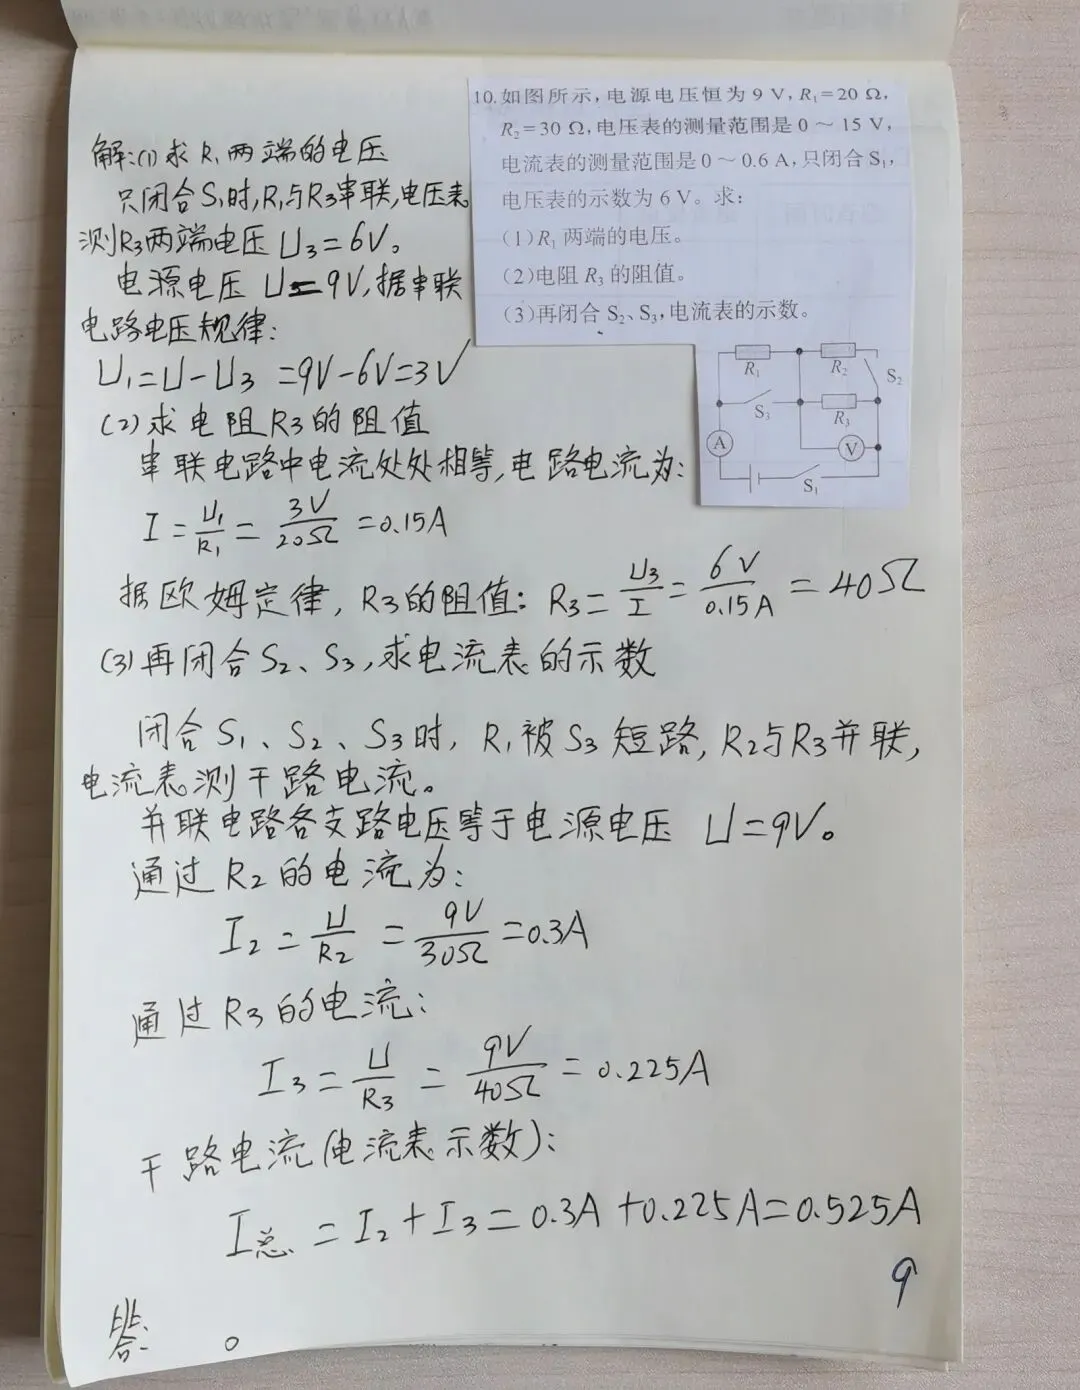 10.如图所示,电源电压恒为 9 V,R₁=20 Ω,
R₂=30 Ω,电压表的测量范围是 0 ～ 15 V,
电流表的测量范围是 0 ～ 0.6 A,只闭合 S₁,
电压表的示数为 6 V。求:
(1)R₁ 两端的电压。
(2)电阻 R₃ 的阻值。
(3)再闭合 S₂、S₃,电流表的示数。
R₁
R₂
S₂
S₃
R₃
A
V
S₁
解:(1)求R₁两端的电压
只闭合S₁时,R₁与R₃串联,电压表
测R₃两端电压 U₃=6V。
电源电压 U=9V,据串联
电路电压规律:
U₁=U-U₃=9V-6V=3V
(2)求电阻R₃的阻值
串联电路中电流处处相等,电路电流为:
I=U₁/R₁=3V/20Ω=0.15A
据欧姆定律,R₃的阻值:R₃=U₃/I=6V/0.15A=40Ω
(3)再闭合S₂、S₃,求电流表的示数
闭合S₁、S₂、S₃时,R₁被S₃短路,R₂与R₃并联,
电流表测干路电流。
并联电路各支路电压等于电源电压 U=9V。
通过R₂的电流为:
I₂=U/R₂=9V/30Ω=0.3A
通过R₃的电流:
I₃=U/R₃=9V/40Ω=0.225A
干路电流(电流表示数):
I总=I₂+I₃=0.3A+0.225A=0.525A
9
答: 。